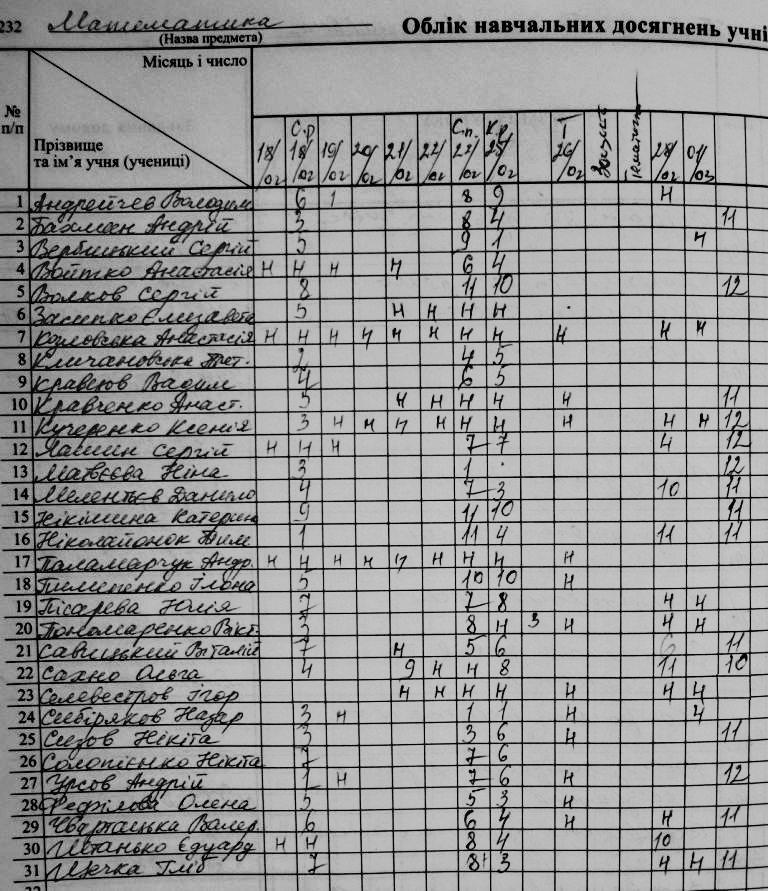 232 Математика Облік навчальних досягнень учні
(Назва предмета)
Місяць і число
№ п/п
Прізвище та ім'я учня (учениці)
С.р. С.п. К.р. I
18/02 18/02 19/02 20/02 21/02 22/02 22/02 25/02 26/02 28/02 01/03
1 Андрейчев Володим 6 1 8 9 н
2 Бахман Андрій 3 8 4 11
3 Вербицький Сергій 5 9 1 н
4 Войтко Анастасія н н н н 6 4
5 Волков Сергій 8 11 10 12
6 Засипко Єлизавета 5 н н н н
7 Козловська Анастасія н н н н н н н н н н н
8 2 4 5
9 Вадим 4 6 5
10 Кравченко Анаст. 5 н н н н н 11
11 Кучеренко Ксенія 3 н н н н н н н н н 12
12 Лашин Сергій н н н 7 7 н 12
13 Матвєєва Ніна 3 1 12
14 Мелентьєв Данило 4 7 3 10 11
15 Нікішина Катерина 9 11 10 11
16 Ніколайонок Дим. 1 11 4 11 11
17 Паламарчук Андр. н н н н н н н н н
18 Пилипенко Ілона 5 10 10 н
19 Пісарева Юлія 7 7 8 н н
20 Пономаренко Вікт. 3 8 н 3 н н н
21 Савицький Віталій 7 н 5 6 6 11
22 Сахно Ольга 4 9 н н 8 11 10
23 Селевестров Ігор н н н н н н н
24 Сибіряков Назар 3 н 1 1 н н
25 Сизов Нікіта 3 3 6 н 11
26 Солопієнко Нікіта 7 7 6
27 Урсов Андрій 1 н 7 6 н 12
28 Олена 5 5 3 н
29 Чвартацька Валер. 6 6 4 н н 11
30 Штанько Едуард н н 8 4 10
31 Гліб 7 8 3 н н 11